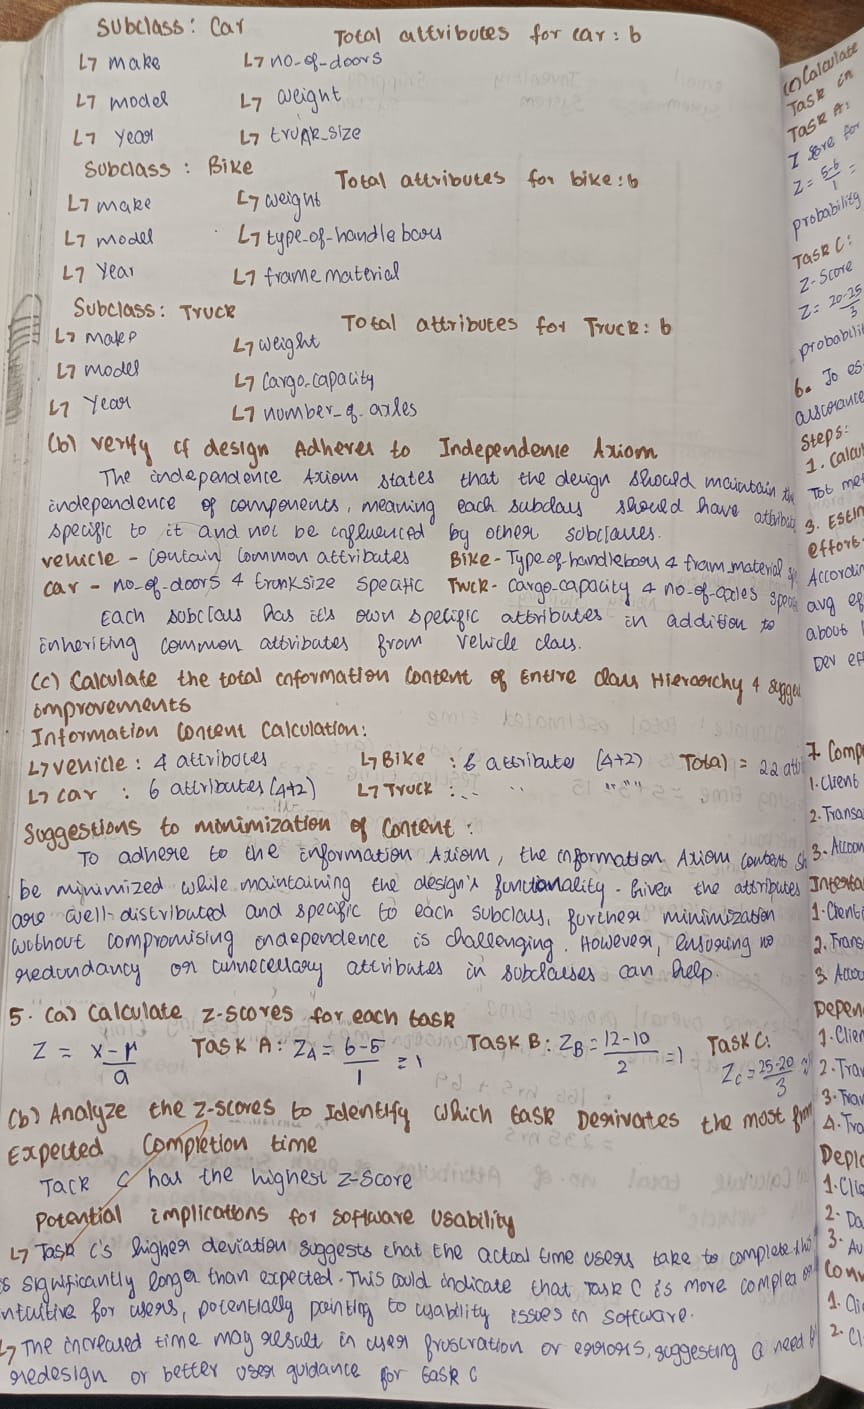 Subclass: Car Total attributes for car: 6
↳ make ↳ no-of-doors
↳ model ↳ weight
↳ year ↳ trunk_size
Subclass: Bike Total attributes for bike: 6
↳ make ↳ weight
↳ model ↳ type-of-handlebars
↳ Year ↳ frame material
Subclass: Truck Total attributes for Truck: 6
↳ make ↳ weight
↳ model ↳ Cargo-capacity
↳ Year ↳ number-of-axles
(b) verify if design Adheres to Independence Axiom
The independence Axiom states that the design should maintain the
independence of components, meaning each subclass should have attribut
specific to it and not be influenced by other subclasses.
vehicle - contain common attributes Bike - Type of-handlebars & fram_material
Car - no-of-doors & trunksize specific Truck - Cargo-capacity & no-of-axles
Each subclass has it's own specific attributes in addition to
inheriting common attributes from vehicle class.
(c) Calculate the total information content of Entire class Hierarchy & sugges
improvements
Information Content Calculation:
↳ vehicle: 4 attributes ↳ Bike : 6 attribute (4+2) Total = 22 att
↳ car : 6 attributes (4+2) ↳ Truck : " " " " "
Suggestions to minimization of Content:
To adhere to the information Axiom, the information Axiom content sh
be minimized while maintaining the design's functionality. Given the attributes
are well-distributed and specific to each subclass, further minimization
without compromising independence is challenging. However, ensuring no
redundancy or unnecessary attributes in subclasses can help.
5. (a) Calculate z-scores for each task
Z = x-μ/a TASK A: ZA = 6-5/1 = 1 TASK B: ZB = 12-10/2 = 1 TASK C: ZC = 25-20/3
(b) Analyze the z-scores to Identify which task Derivates the most from
Expected Completion time
Task C has the highest z-score
Potential implications for software Usability
↳ Task C's higher deviation suggests that the actual time users take to complete this
is significantly longer than expected. This could indicate that Task C is more complex or
intuitive for users, potentially pointing to usability issues in software.
↳ The increased time may result in user frustration or errors, suggesting a need
redesign or better user guidance for task C
(c) Calculate
Task in
TASK A:
Z score for
Z = 5-6/1 =
probability
TASK C:
Z-Score
Z = 20-25/3
probabili
6. To es
Steps:
1. Calcul
3. Estim
effort
Accordin
avg ef
about
Dev eff
7. Comp
1. Client
2. Transa
3. Accoun
Interfa
1. Client
2. Trans
3. Accou
Depen
1. Clien
2. Tra
3. Tra
4. Tra
Deplo
1. Clie
2. Da
3. Au
Con
1. Cli
2. Cl